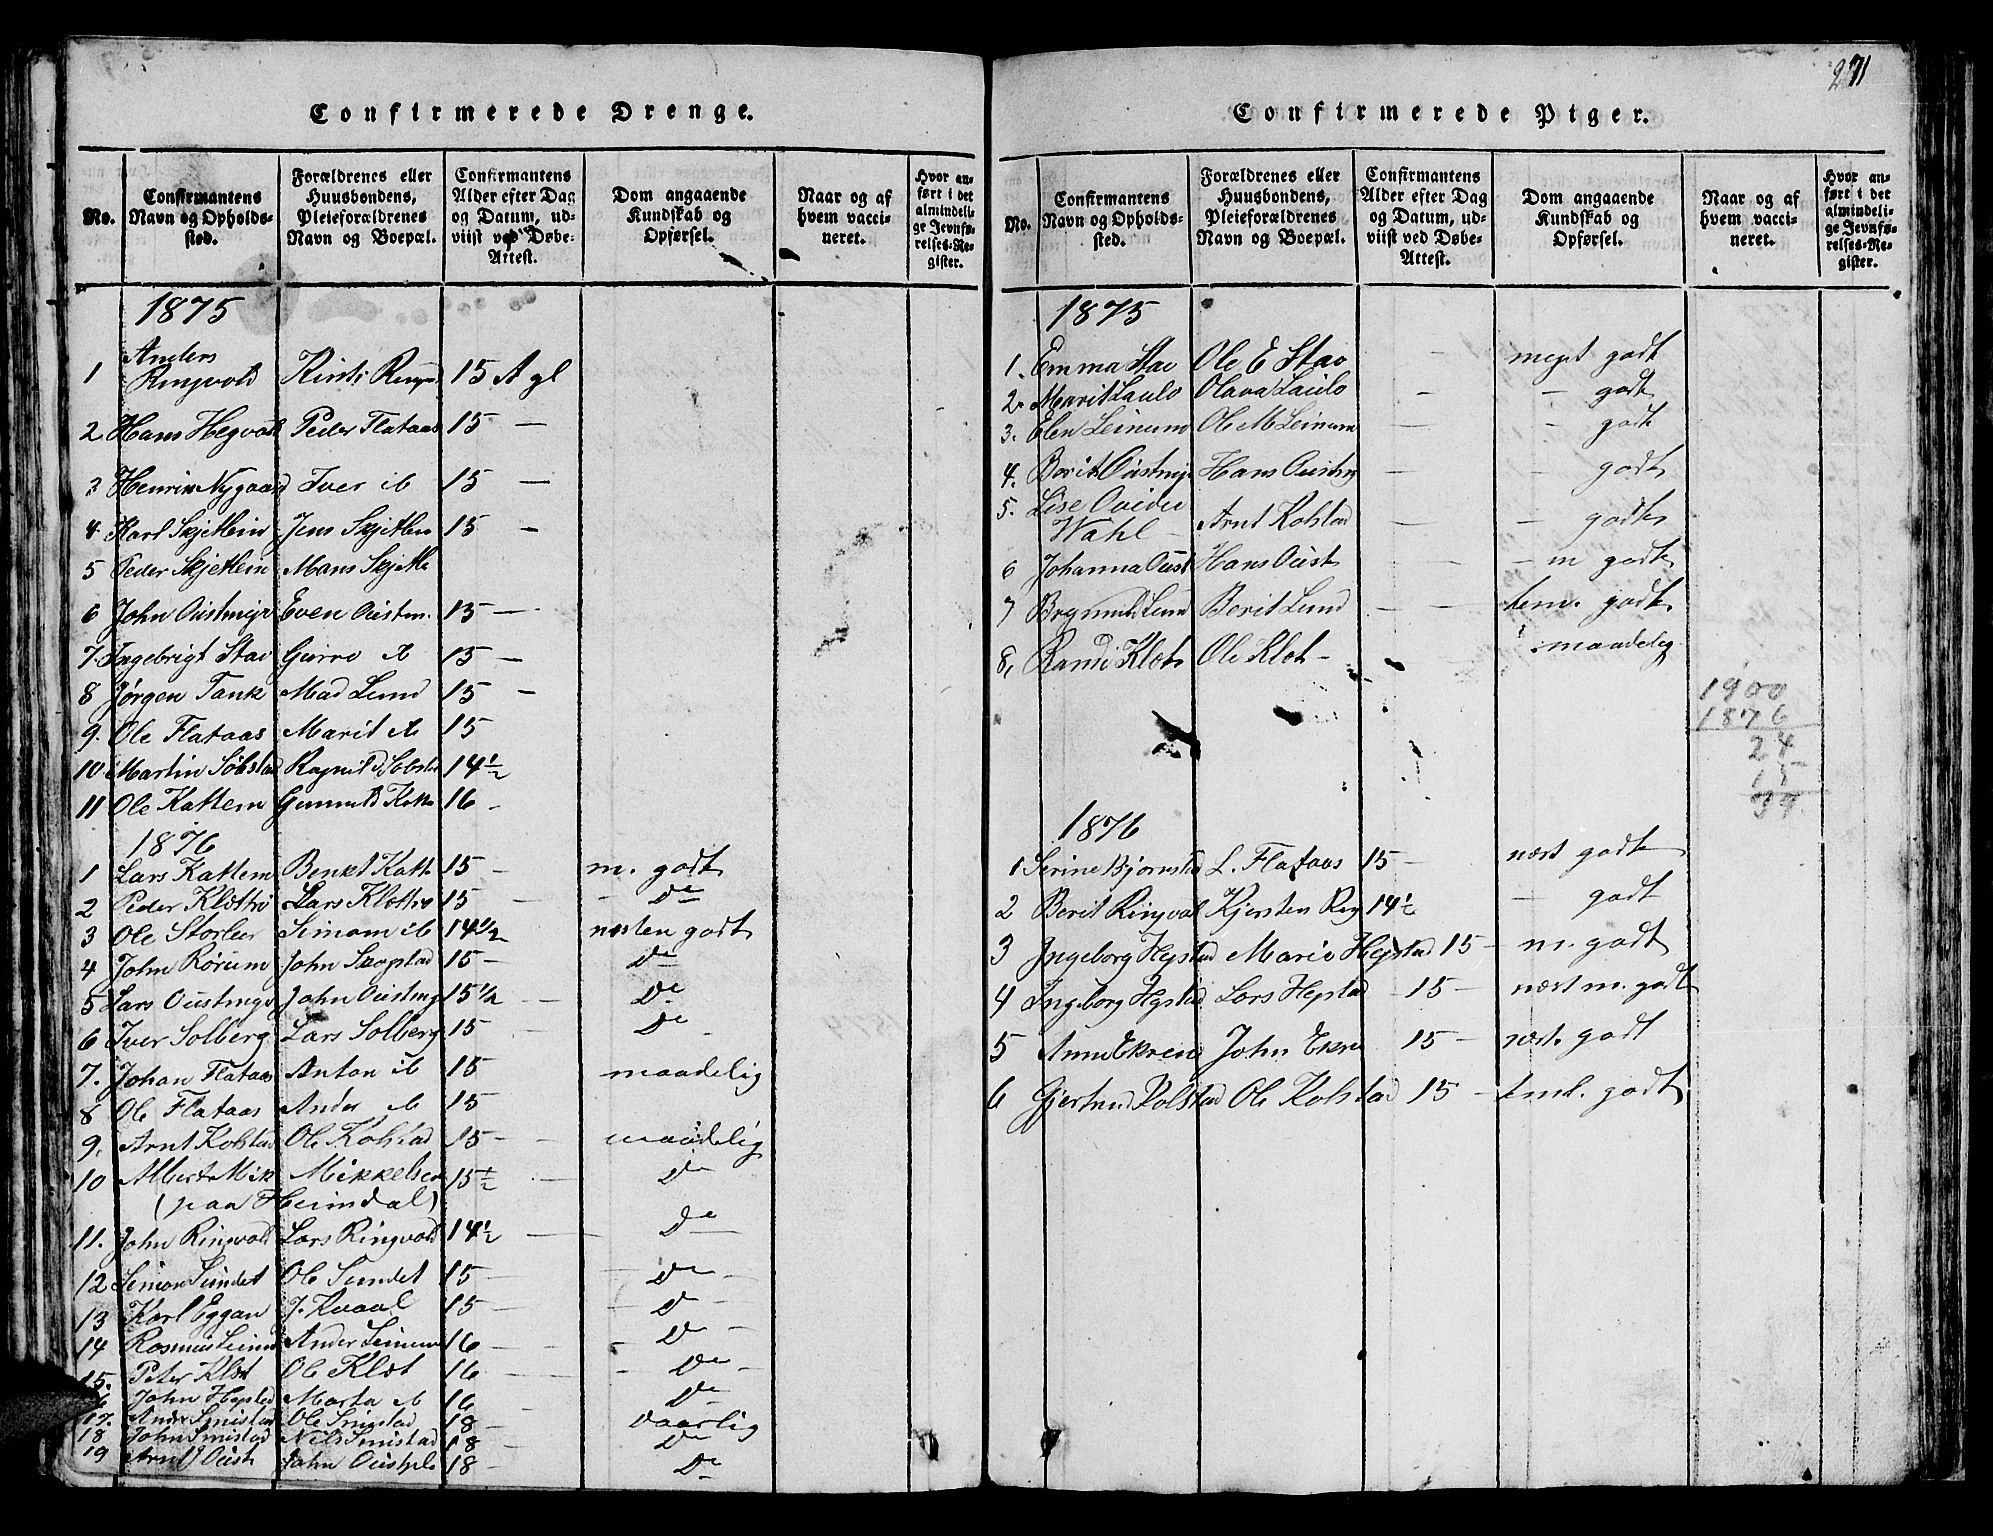 271
Confirmerede Drenge.
No.
Confirmantens Navn og Opholds-sted.
Forældrenes eller Huusbondens, Pleieforældrenes Navn og Boepæl.
Confirmantens Alder efter Dag og Datum, ud-viist ved Døbe-Attest.
Dom angaaende Kundskab og Opførsel.
Naar og af hvem vacci-neret.
Hvor an-ført i det almindeli-ge Jevnfø-relses-Re-gister.
1875
1 Anders Ringvold 15
2 Hans Peder Flataas 15 —
3 Nygaard Iver ib 15 —
4 Karl Skjetlein Jens Skjetlein 15 —
5 Peder Skjetlein Mans Skjetle
6 John Oustmyr Even Oustm. 15 —
7. Ingebrigt Stav Gurro ib 15 —
8 Jørgen Tank Mad Lund 15 —
9. Ole Flataas Marit ib 15
10 Martin Sobstad 14½
11 Ole Kattem 16 -
1876
1 Lars Kattem Benkt Katt 15 - m. godt
2 Peder Klæthe Lars Klethe 15 - - De
3 Ole Simon ib 14½ nesten godt
4 John Rørum John Skogstad 15 - De
5 Lars Oustmyr John Oustmy 15½ - De
6 Iver Solberg Lars Solberg 15 - De
7. Johan Flataas Anton ib 15 maadelig
8 Ole Flataas Ander ib 15
9. Arnt Kolstad Ole Kolstad 15 - maadelig
10 Albert Mik Mikkelsen 15½ - De
(paa Heimdal)
11. John Ringvold Lars Ringvold 14½ - De
12 Simon Sundet Ole Sundet 15 - De -
13 Karl Eggan J. Kvaal 15 - - D -
14 Rasmus Leinum Ander Leinum 16 - - D -
15. Peter Klet Ole Klet 16 - De -
16 John Hepstad Marta ib 16 De
17. Ander Smistad Ole Smistad 18 - daarlig
18 John Smistad Nils Smistad 18 - De
19 Arnt Oust John 18 - De
Confirmerede Piger.
No.
Confirmantens Navn og Opholds-sted.
Forældrenes eller Huusbondens, Pleieforældrenes Navn og Boepæl.
Confirmantens Alder efter Dag og Datum, ud-viist ved Døbe-Attest.
Dom angaaende Kundskab og Opførsel.
Naar og af hvem vacci-neret.
Hvor an-ført i det almindeli-ge Jevnfø-relses-Re-gister.
1875
1. Emma Stav Ole E Stav - meget godt
2. Marit Laulo Olava Laulo - - godt
3. Elen Leinum Ole M Leinum - - godt
4. Berit Oustmyr Hans Oustmy - godt
5. Lise
Wahl - Arnt Kolstad - - godt
6 Johanna Oust Hans Oust - m godt
7 Lund Berit Lund - - tem. godt
8, Randi Klet Ole Klet - maadelig
1900
1876
24
15
39
1876
1 Serine Bjørnstad L. Flataas 15 - næst godt
2 Berit Ringvol Kjersten Rin 14½ - godt
3 Ingeborg Hepstad Marie Hepstad 15 - m. godt
4 Ingeborg Hepstad Lars Hepstad - 15 - næst m. godt
5 Anne Ekren John Ekre 15 - næst. godt
6 Gjertrud Kolstad Ole Kolstad 15 - teml. godt